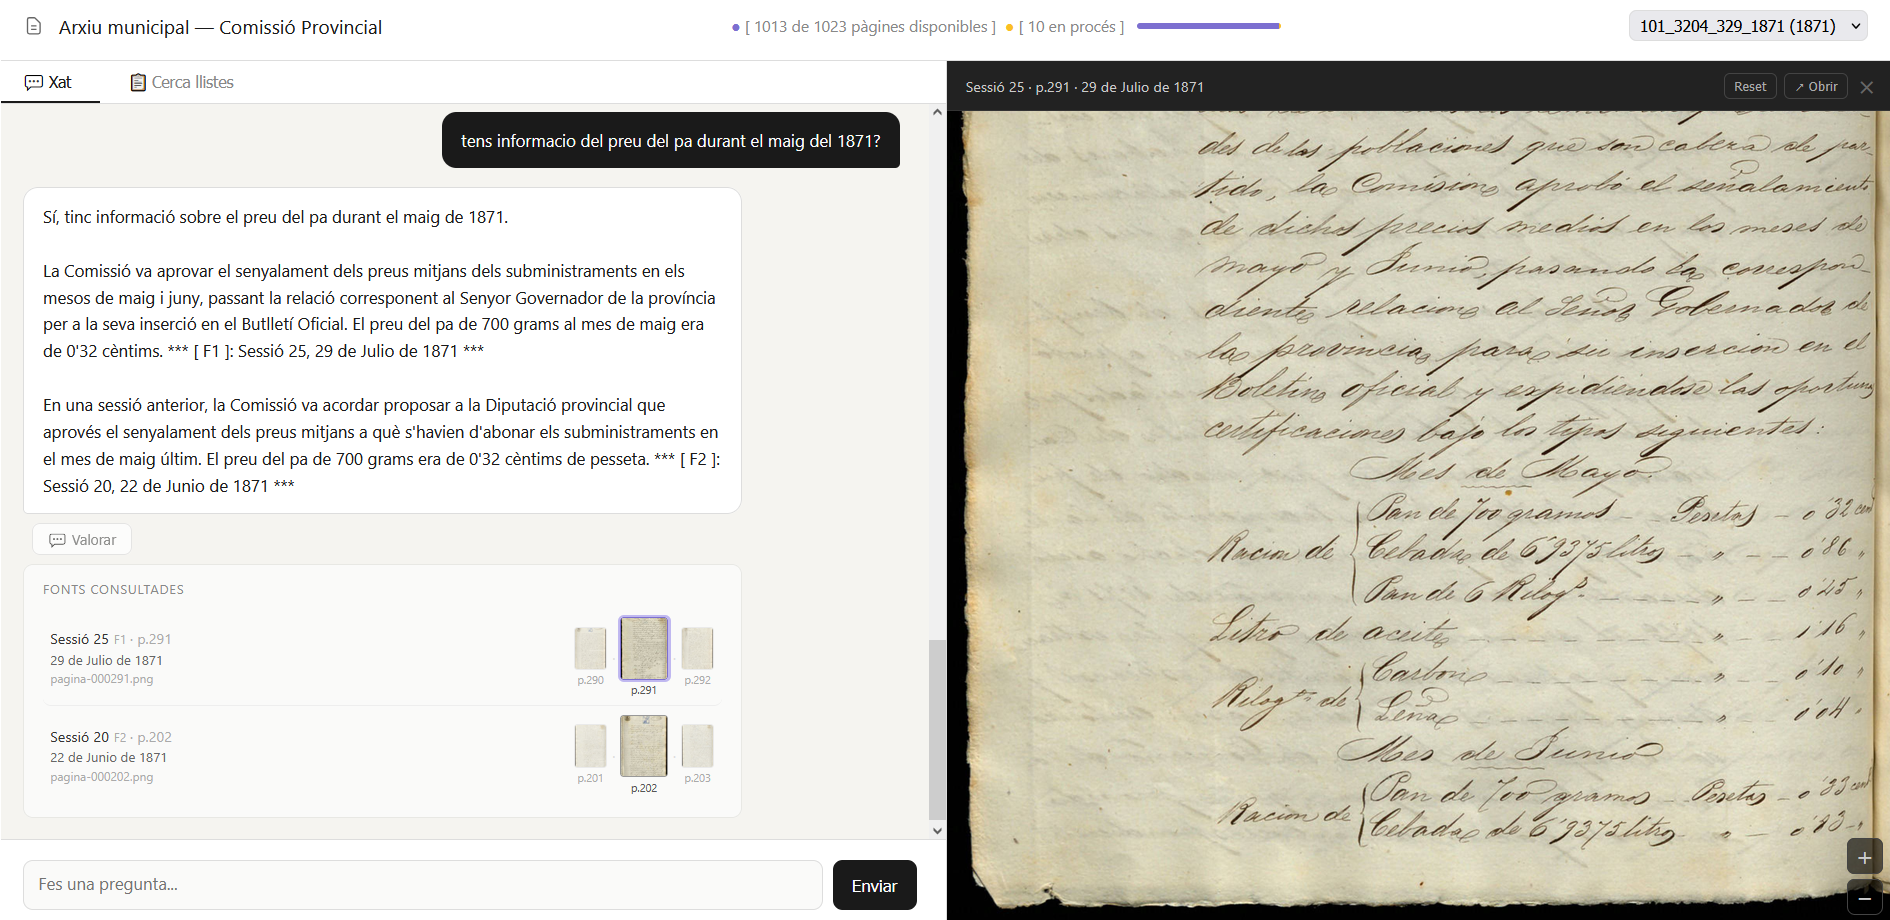 Arxiu municipal — Comissió Provincial
[ 1013 de 1023 pàgines disponibles ]
[ 10 en procés ]
101_3204_329_1871 (1871)
Xat
Cerca llistes
tens informacio del preu del pa durant el maig del 1871?
Sí, tinc informació sobre el preu del pa durant el maig de 1871.
La Comissió va aprovar el senyalament dels preus mitjans dels subministraments en els
mesos de maig i juny, passant la relació corresponent al Senyor Governador de la província
per a la seva inserció en el Butlletí Oficial. El preu del pa de 700 grams al mes de maig era
de 0'32 cèntims. *** [ F1 ]: Sessió 25, 29 de Julio de 1871 ***
En una sessió anterior, la Comissió va acordar proposar a la Diputació provincial que
aprovés el senyalament dels preus mitjans a què s'havien d'abonar els subministraments en
el mes de maig últim. El preu del pa de 700 grams era de 0'32 cèntims de pesseta. *** [ F2 ]:
Sessió 20, 22 de Junio de 1871 ***
Valorar
FONTS CONSULTADES
Sessió 25 F1 · p.291
29 de Julio de 1871
pagina-000291.png
p.290
p.291
p.292
Sessió 20 F2 · p.202
22 de Junio de 1871
pagina-000202.png
p.201
p.202
p.203
Fes una pregunta...
Enviar
Sessió 25 · p.291 · 29 de Julio de 1871
Reset
↗ Obrir
des de las poblaciones que son cabeza de par-
tido, la Comision aprobó el señalamiento
de dichos precios medios en los meses de
mayo y Junio, pasando la correspon-
diente relacion al Señor Gobernador de
la provincia para su insercion en el
Boletin oficial y expidiendose las oportunas
certificaciones bajo los tipos siguientes:
Mes de Mayo.
Racion de
Pan de 700 gramos — Pesetas — 0'32 cent
Cebada de 6'9375 litros — " — 0'86 "
Pan de 6 Kilogs. — " — 0'25 "
Litro de aceite — " — 1'16 "
Kilogmo de
Carbon — " — 0'10 "
Leña — " — 0'04 "
Mes de Junio
Racion de
Pan de 700 gramos — Pesetas — 0'33 cent
Cebada de 6'9375 litros " — 0'83 "